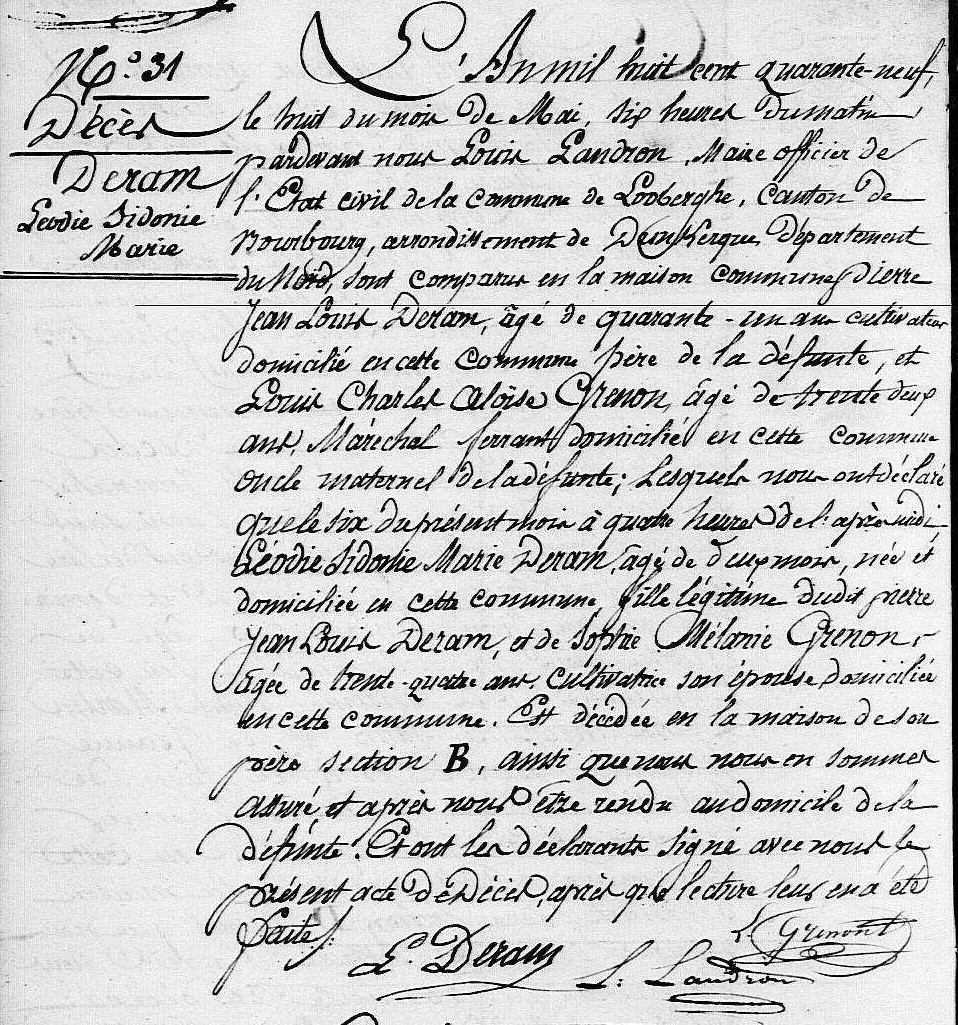 N.º 31
Décès
Deram
Léodie Sidonie
Marie
L'An mil huit cent quarante-neuf,
le huit du mois de Mai, six heures du matin,
pardevant nous Louis Landron, Maire officier de
l'Etat civil de la commune de Looberghe, canton de
Bourbourg, arrondissement de Dunkerque, Département
du Nord, sont comparus en la maison commune, Pierre
Jean Louis Deram, âgé de quarante-un ans cultivateur
domicilié en cette commune père de la défunte, et
Louis Charles Aloïse Grenon, âgé de trente deux
ans, Maréchal ferrant domicilié en cette commune
oncle maternel de la défunte; Lesquels nous ont déclaré
que le six du présent mois à quatre heures de l'après midi
Léodie Sidonie Marie Deram, âgé de deux mois, née et
domiciliée en cette commune, fille légitime dudit pierre
Jean Louis Deram, et de Sophie Mélanie Grenon,
âgée de trente-quatre ans. Cultivatrice son épouse, domiciliée
en cette commune. Est décédée en la maison de son
père section B, ainsi que nous nous en sommes
assuré et après nous être rendu au domicile de la
défunte. Et ont les déclarants signé avec nous le
présent acte de Décès, après que lecture leur en a été
faite.
L. Deram
L. Landron
L. Grenont